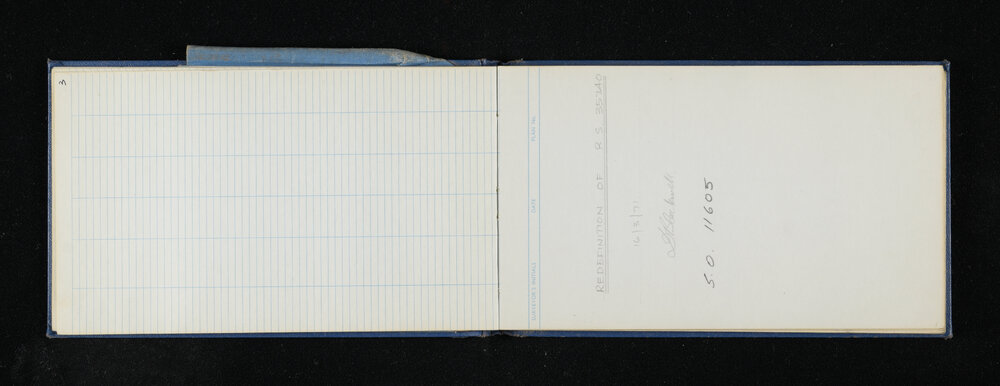 3
SURVEYOR'S INITIALS DATE PLAN No.
REDEFINITION OF R S 35240
16/3/71
S.O. 11605